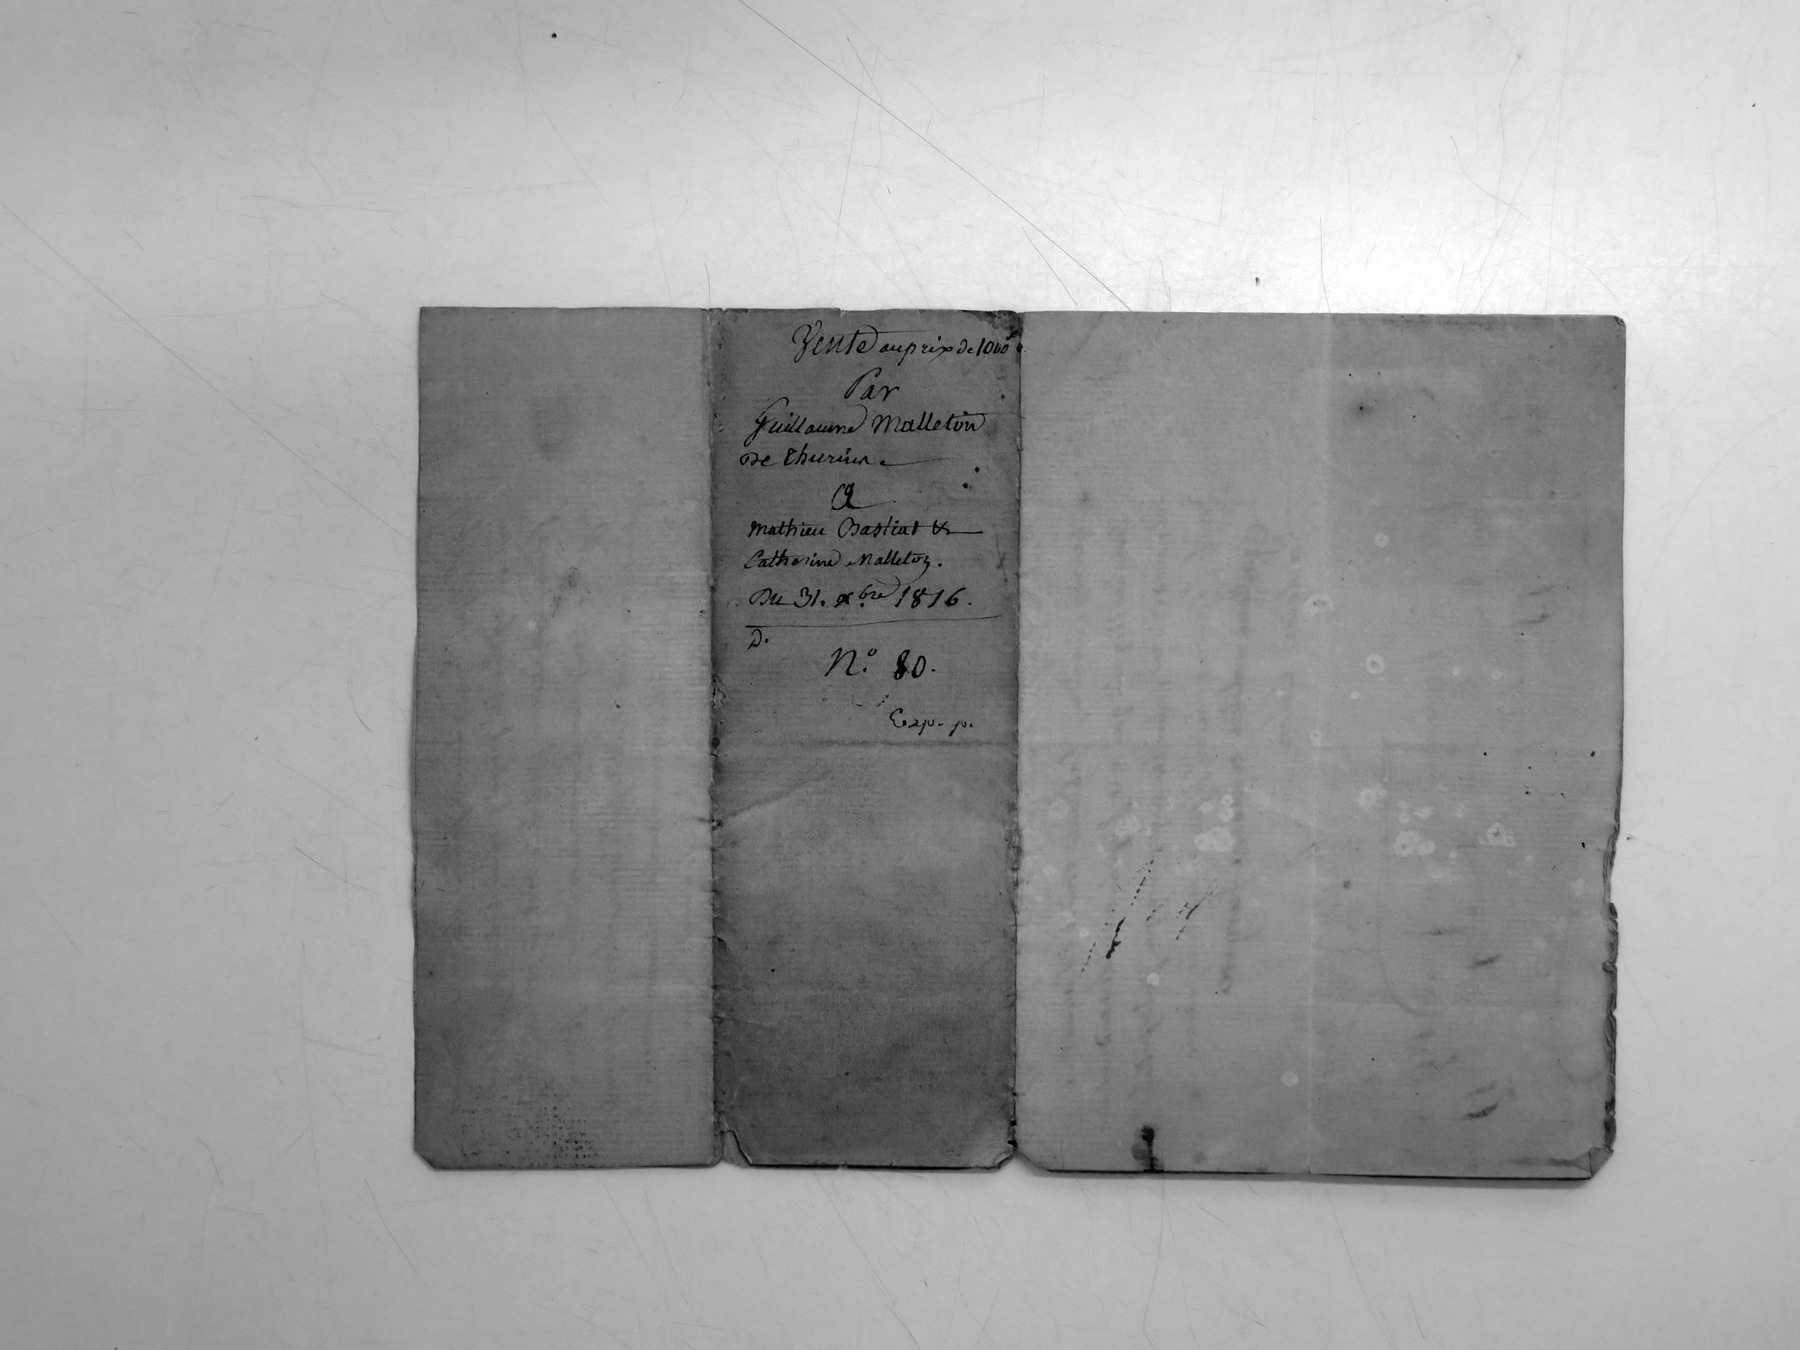 Vente au prix de 1000 f
Par
Guillaume Malleton
De Thurins
A
Mathieu Bastiat &
Catherine Malleton.
Du 31. xbre 1816.
D.
N.o 80.
Exp. p.